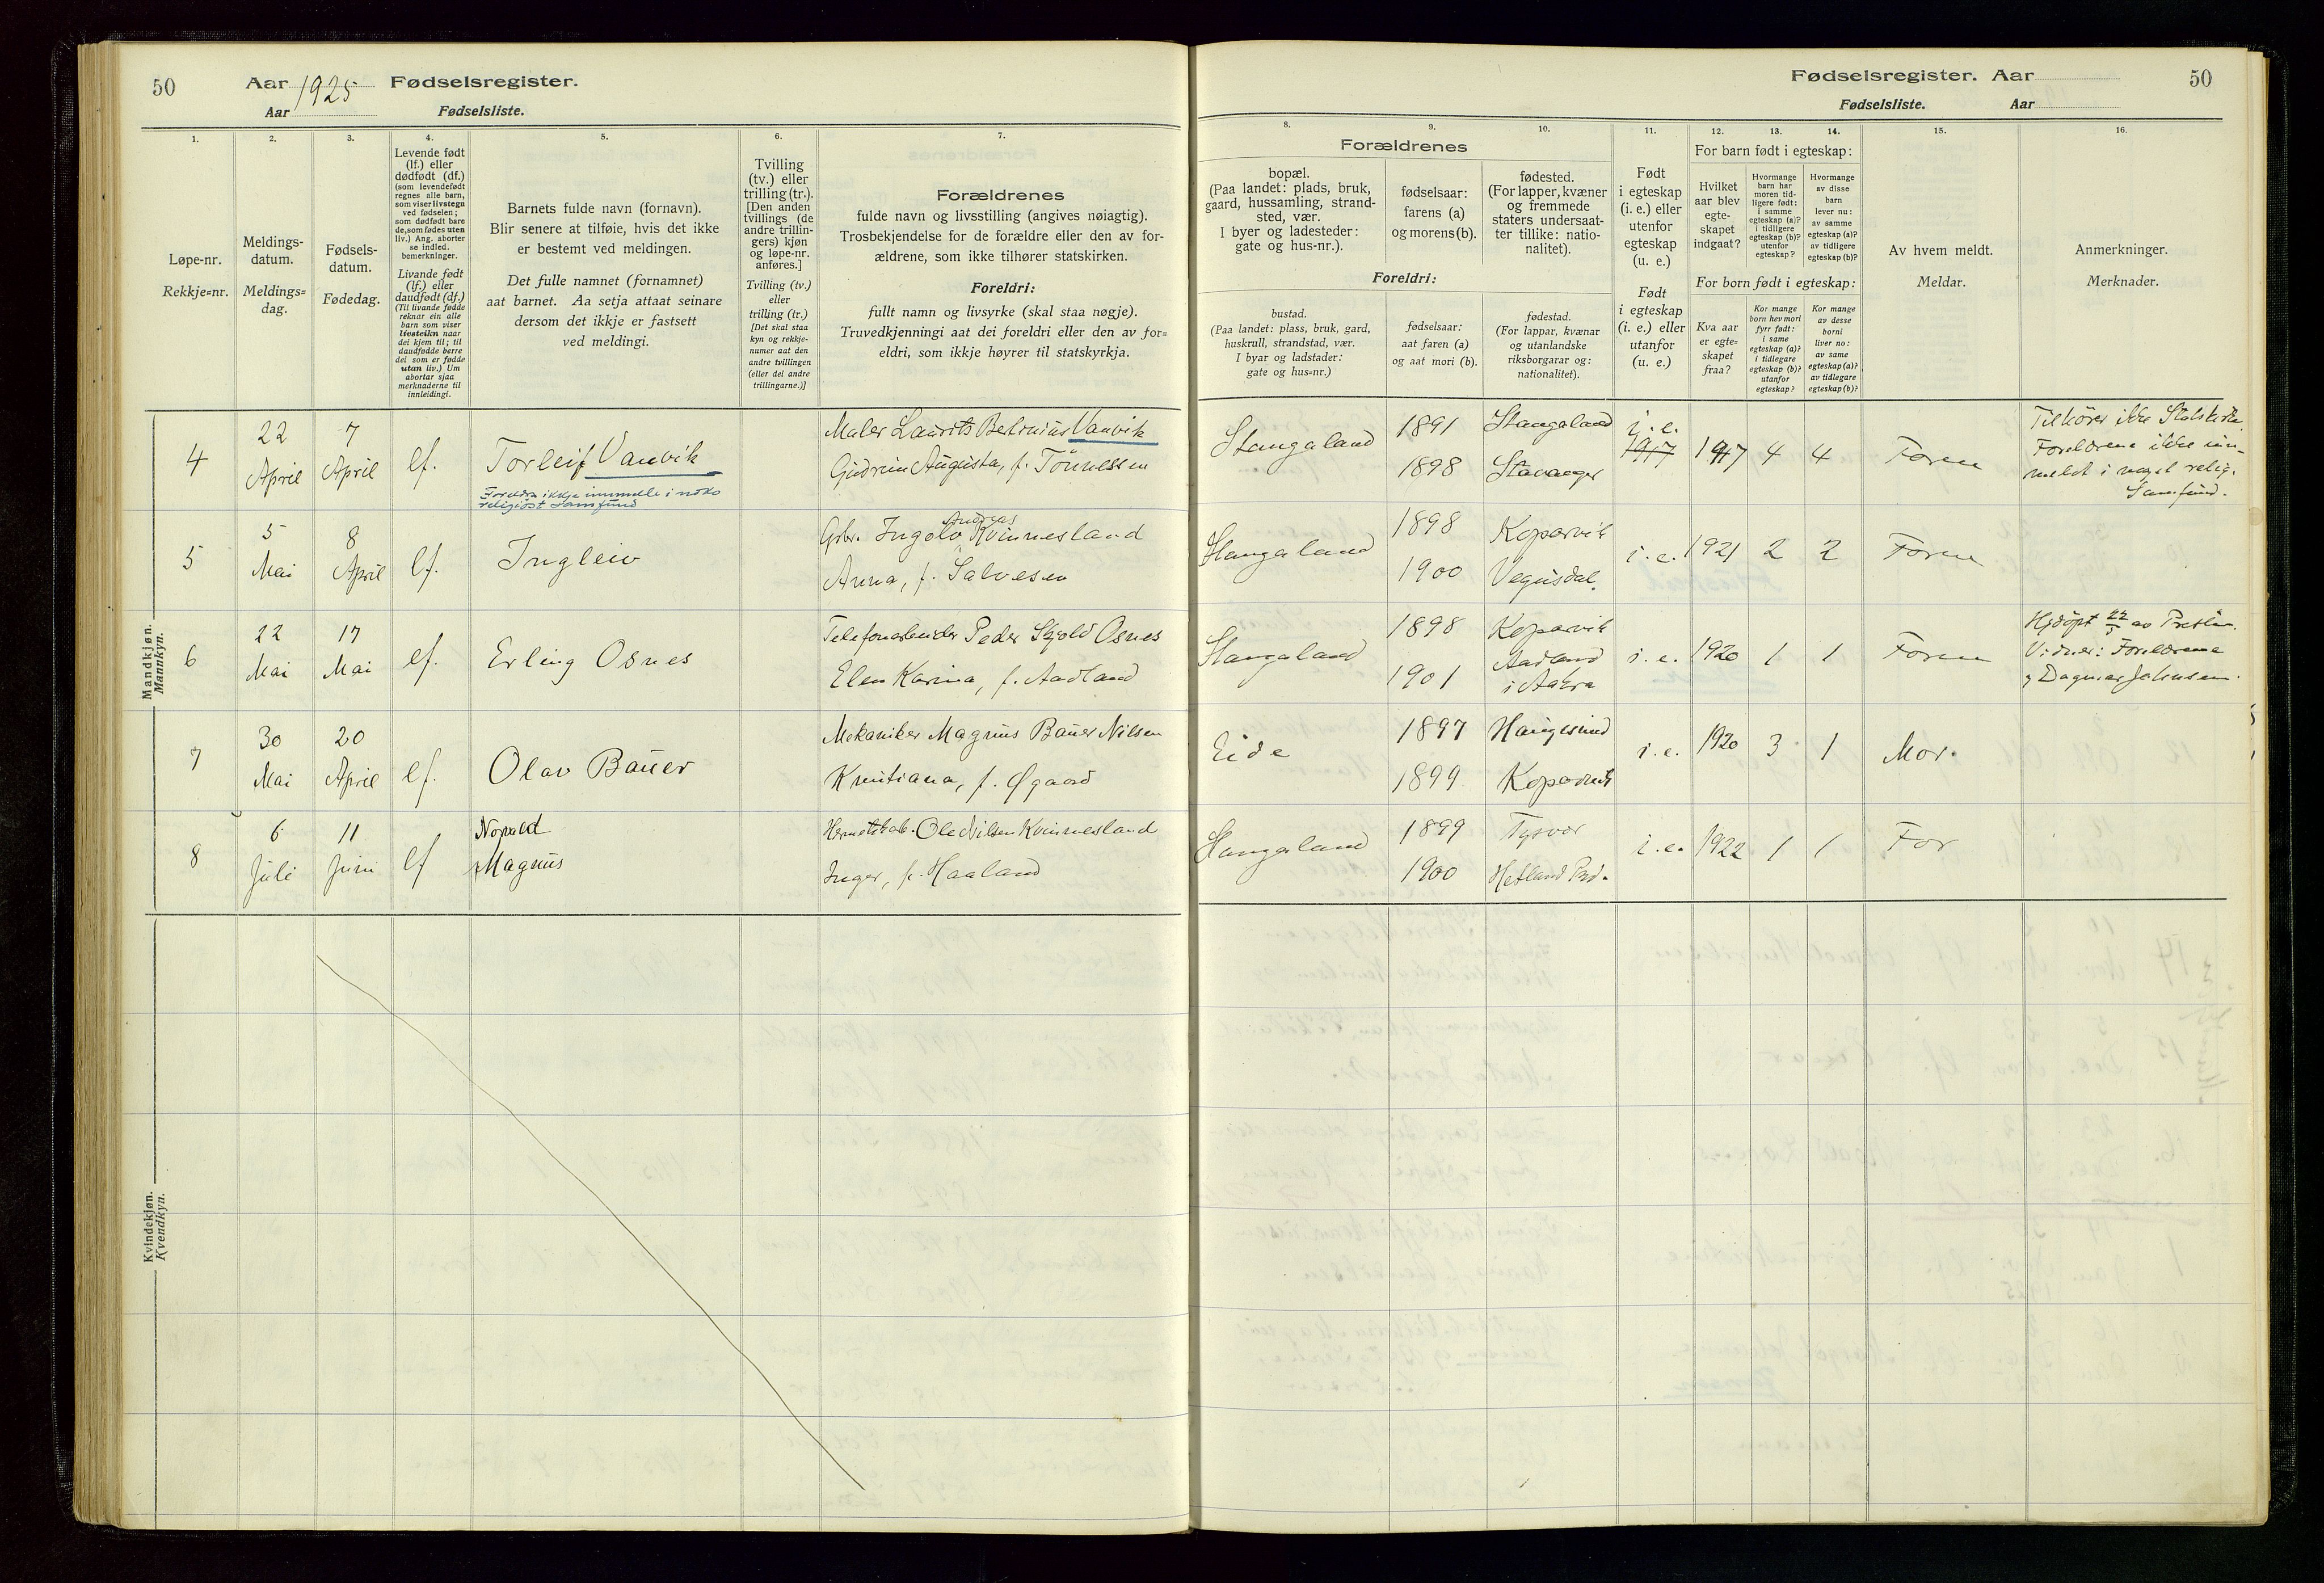 50
Aar 1925 Fødselsregister.
Aar Fødselsliste.
1.
2.
3.
4.
5.
6.
7.
Løpe-nr.
Rekkje=nr.
Meldings-
datum.
Meldings=
dag.
Fødsels-
datum.
Fødedag.
Levende født
(lf.) eller
dødfødt (df.)
(som levendefødt
regnes alle barn,
som viser livstegn
ved fødselen;
som dødfødt bare
de, som fødes uten
liv.) Ang. aborter
se indled.
bemerkninger.
Livande født
(lf.) eller
daudfødt (df.)
(Til livande fødde
reknar ein alle
barn som viser
livsteikn naar
dei kjem til; til
daudfødde berre
dei som er fødde
utan liv.) Um
abortar sjaa
merknaderne til
innleidingi.
Barnets fulde navn (fornavn).
Blir senere at tilføie, hvis det ikke
er bestemt ved meldingen.
Det fulle namnet (fornamnet)
aat barnet. Aa setja attaat seinare
dersom det ikkje er fastsett
ved meldingi.
Tvilling
(tv.) eller
trilling (tr.).
[Den anden
tvillings (de
andre trillin-
gers) kjøn
og løpe-nr.
anføres.]
Tvilling (tv.)
eller
trilling (tr.)
[Det skal staa
kyn og rekkje-
numer aat den
andre tvillingen
(eller dei andre
trillingarne.)]
Forældrenes
fulde navn og livsstilling (angives nøiagtig).
Trosbekjendelse for de forældre eller den av for-
ældrene, som ikke tilhører statskirken.
Foreldri:
fullt namn og livsyrke (skal staa nøgje).
Truvedkjenningi aat dei foreldri eller den av for-
eldri, som ikkje høyrer til statskyrkja.
Mandkjøn.
Mannkyn.
4
22
April
7
April
lf.
Torleif Vanvik
Foreldra ikkje innmelde i noko
religiøst samfund
Maler Laurits Bertinius Vanvik
Gudrun Augusta, f. Tönnessen
5
5
Mai
8
April
lf.
Ingleiv
Andreas
Gbr. Ingolv Kvinnesland
Anna, f. Salvesen
6
22
Mai
17
Mai
lf.
Erling Osnes
Telefonarbeider Peder Skjold Osnes
Elen Karina, f. Aadland
7
30
Mai
20
April
lf.
Olav Bauer
Mekaniker Magnus Bauer Nilsen
Kristiana, f. Øgaard
8
6
Juli
11
Juni
lf
Norvald
Magnus
Ole Nilsen Kvinnesland
Inger, f. Haaland
Kvindekjøn.
Kvendkyn.
Fødselsregister. Aar
50
Fødselsliste. Aar
8.
9.
10.
11.
12.
13.
14.
15.
16.
Forældrenes
bopæl.
(Paa landet: plads, bruk,
gaard, hussamling, strand-
sted, vær.
I byer og ladesteder:
gate og hus-nr.).
fødselsaar:
farens (a)
og morens (b).
fødested.
(For lapper, kvæner
og fremmede
staters undersaat-
ter tillike: natio-
nalitet).
Foreldri:
bustad.
(Paa landet: plass, bruk, gard,
huskrull, strandstad, vær.
I byar og ladstader:
gate og hus=nr.)
fødselsaar:
aat faren (a)
og aat mori (b).
fødestad.
(For lappar, kvænar
og utanlandske
riksborgarar og:
nationalitet).
Født
i egteskap
(i. e.) eller
utenfor
egteskap
(u. e.)
Født
i egteskap
(i. e.) eller
utanfor
(u. e.)
For barn født i egteskap:
Hvilket
aar blev
egte-
skapet
indgaat?
Hvormange
barn har
moren tid-
ligere født:
i samme
egteskap (a)?
i tidligere
egteskap (b)?
utenfor
egteskap?
Hvormange
av disse
barn
lever nu:
av samme
egteskap (a)?
av tidligere
egteskap (b)?
For born født i egteskap:
Kva aar
er egte=
skapet
fraa?
Kor mange
born hev mori
fyrr født:
i same
egteskap (a)?
i tidlegare
egteskap (b)?
utanfor
egteskap?
Kor mange
av desse
borni
liver no:
av same
egteskap (a)?
av tidlegare
egteskap (b)?
Av hvem meldt.
Meldar.
Anmerkninger.
Merknader.
Stangaland
1891
1898
Stangaland
Stavanger
i. e.
1917
1917
4
4
Faren
Tilhører ikke Statskirke.
Foreldrene ikke inn-
meldt i noget relig.
Samfund.
Stangaland
1898
1900
Kopervik
Vegusdal.
i. e.
1921
2
2
Faren
Stangaland
1898
1901
Kopervik
Aadland
i Aakra
i. e.
1920
1
1
Faren
Hjdöpt 22/5 av Presten.
Vidner: Foreldrene
og Dagmar Johnsen.
Eide
1897
1899
Haugesund
Kopervik
i. e.
1920
3
1
Mor.
Stangaland
1899
1900
Tysvær
Hetland Prd.
i. e.
1922
1
1
Far